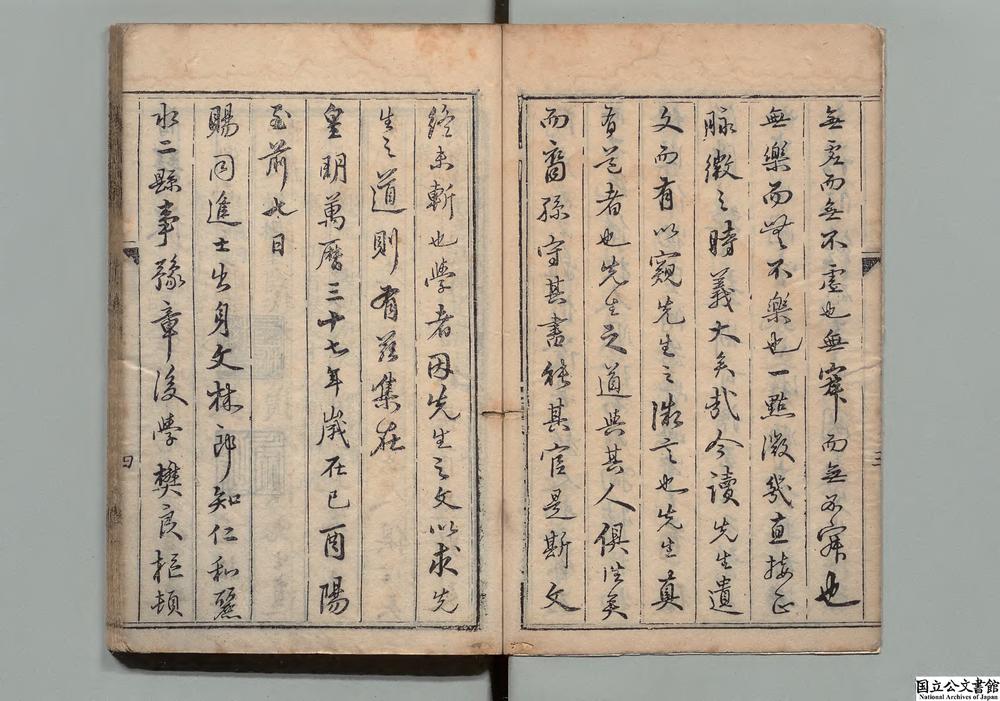 無虛而無不虛也無寂而無不寂也
無樂而無不樂也一點微幾直接正
脉微之時義大矣哉今讀先生遺
文而有以窺先生之微言也先生真
有道者也先生之道與其人俱往矣
而裔孫守其書能其官是斯文
終未斬也學者因先生之文以求先
生之道則有茲集在
皇明萬曆三十七年歲在己酉陽
至前七日
賜同進士出身文林郎知仁和麗
水二縣事豫章後學樊良樞頓
三
四
国立公文書館
National Archives of Japan